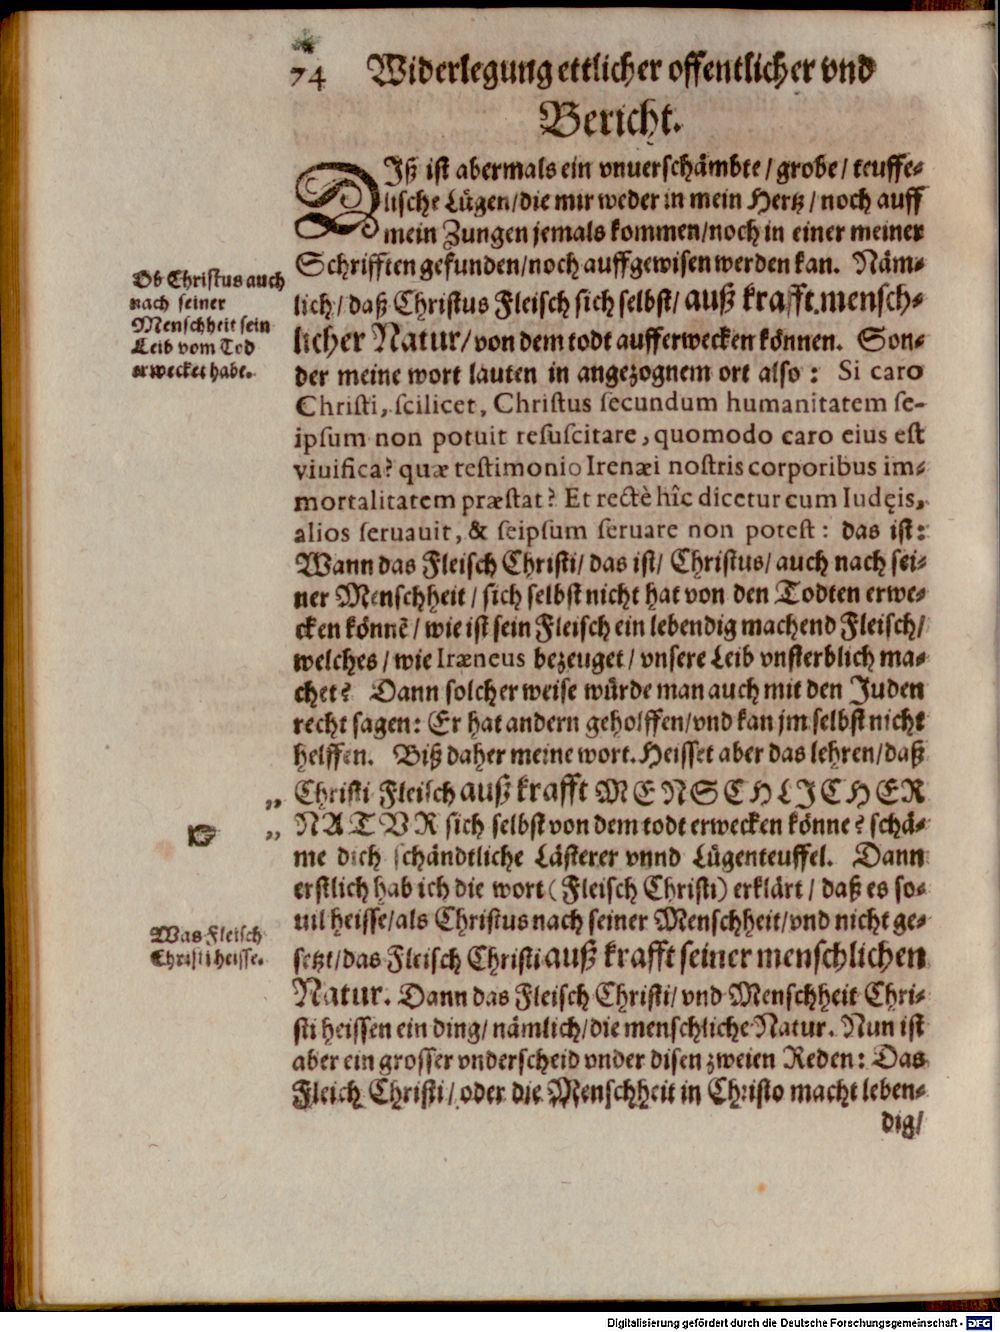 74 Widerlegung ettlicher offentlicher vnd
Bericht.
DIß ist abermals ein vnuerschämbte / grobe / teuffe-
lische Lügen / die mir weder in mein Hertz / noch auff
mein Zungen jemals kommen / noch in einer meiner
Schrifften gefunden / noch auffgewisen werden kan. Näm-
lich / daß Christus Fleisch sich selbst / auß krafft mensch-
licher Natur / von dem todt aufferwecken können. Son-
der meine wort lauten in angezognem ort also : Si caro
Christi, scilicet, Christus secundum humanitatem se-
ipsum non potuit resuscitare, quomodo caro eius est
viuifica? quæ testimonio Irenæi nostris corporibus im-
mortalitatem præstat? Et rectè hîc dicetur cum Iudęis,
alios seruauit, & seipsum seruare non potest : das ist:
Wann das Fleisch Christi / das ist / Christus / auch nach sei-
ner Menschheit / sich selbst nicht hat von den Todten erwe-
cken könnē / wie ist sein Fleisch ein lebendig machend Fleisch /
welches / wie Iræneus bezeuget / vnsere Leib vnsterblich ma-
chet? Dann solcher weise würde man auch mit den Juden
recht sagen: Er hat andern geholffen / vnd kan jm selbst nicht
helffen. Biß daher meine wort. Heisset aber das lehren / daß
„ Christi Fleisch auß krafft MENSCHLICHER
„ NATVR sich selbst von dem todt erwecken könne? schä-
me dich schändtliche Lästerer vnnd Lügenteuffel. Dann
erstlich hab ich die wort (Fleisch Christi) erklärt / daß es so-
uil heisse / als Christus nach seiner Menschheit / vnd nicht ge-
setzt / das Fleisch Christi auß krafft seiner menschlichen
Natur. Dann das Fleisch Christi / vnd Menschheit Chri-
sti heissen ein ding / nämlich / die menschliche Natur. Nun ist
aber ein grosser vnderscheid vnder disen zweien Reden: Das
Fleich Christi / oder die Menschheit in Christo macht leben-
dig /
Ob Christus auch
nach seiner
Menschheit sein
Leib vom Tod
erwecket habe.
Was Fleisch
Christi heisse.
Digitalisierung gefördert durch die Deutsche Forschungsgemeinschaft - DFG